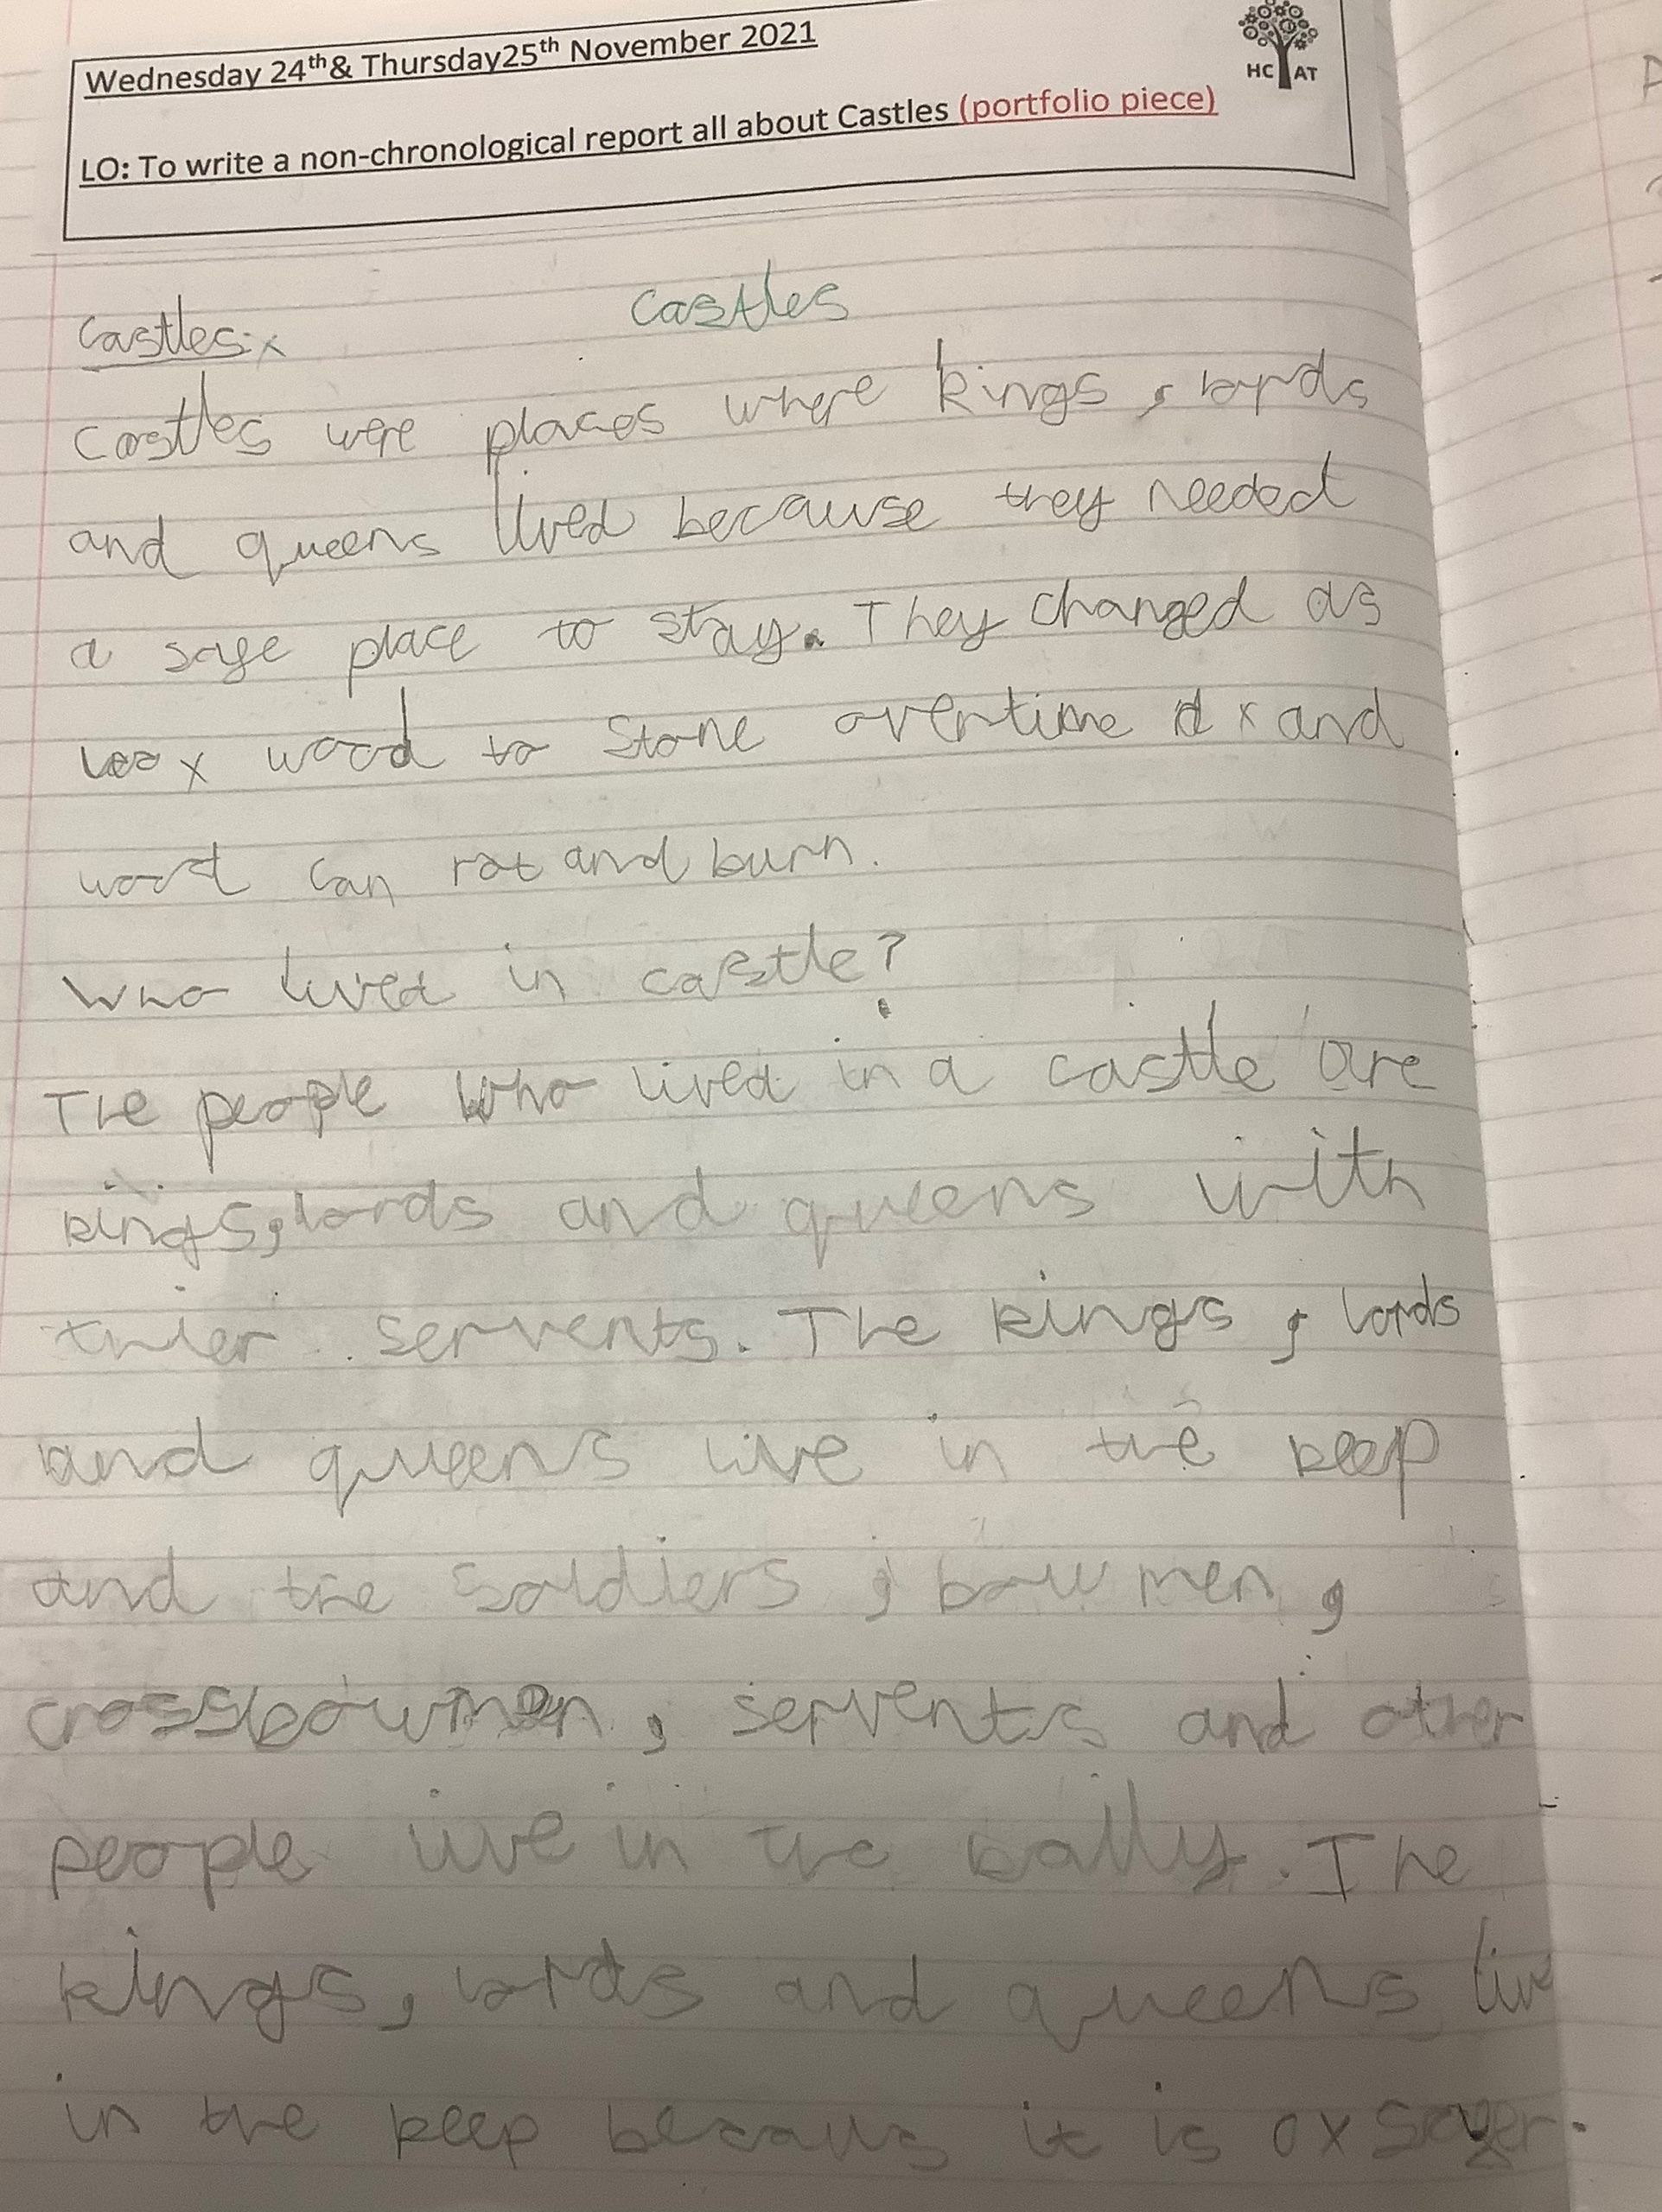 Wednesday 24th& Thursday25th November 2021
HC AT
LO: To write a non-chronological report all about Castles (portfolio piece)
Castles
Castles:x
Castles were places where kings, lords
and queens lived because they needed
a safe place to stay. They changed as
x wood to stone overtime x and
wood can rot and burn.
Who lived in castle?
The people who lived in a castle are
kings, lords and queens with
thier servents. The kings, lords
and queens live in the keep
and the soldiers, bowmen,
crossbowmen, servents and other
people live in the bailly. The
kings, lords and queens live
in the keep becaus it is x safer.